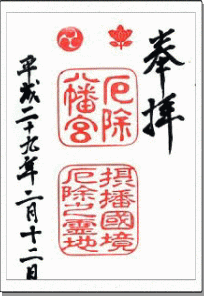 奉拝
厄除
八幡宮
摂播國境
厄除之霊地
平成二十九年二月十二日